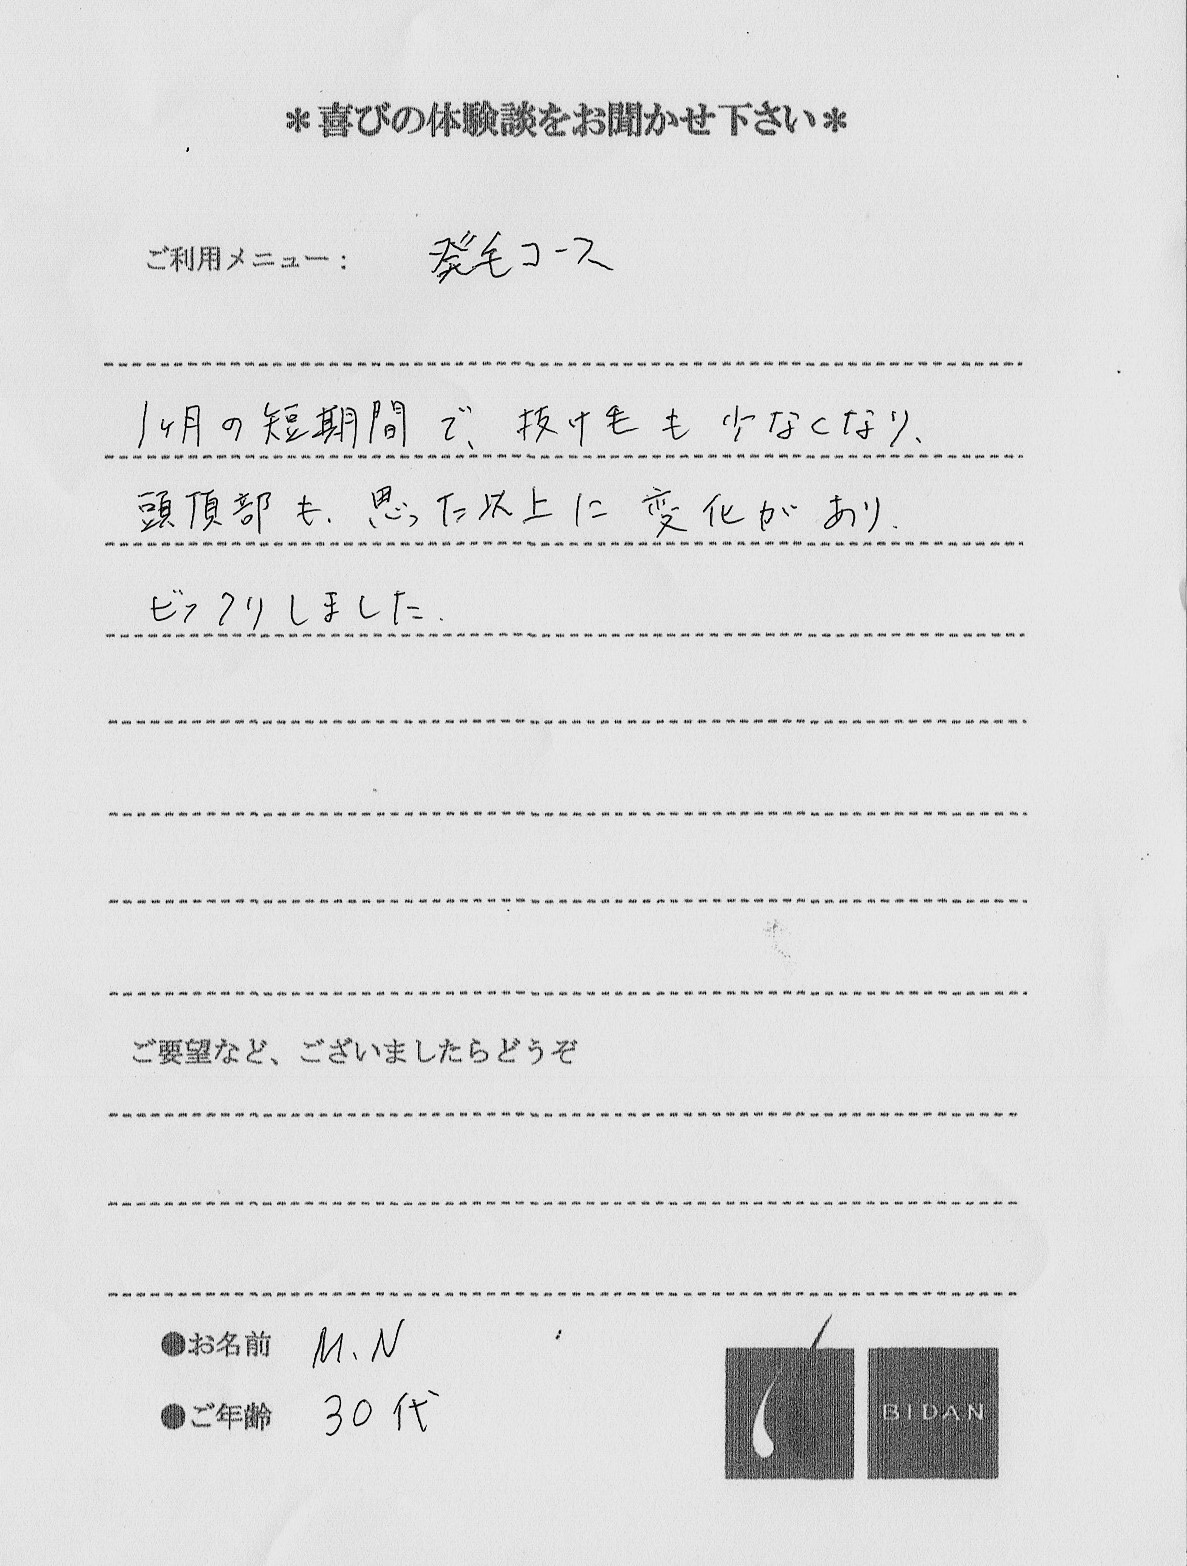 ＊喜びの体験談をお聞かせ下さい＊
ご利用メニュー： 発毛コース
1ヶ月の短期間で、抜け毛も少なくなり、
頭頂部も、思った以上に変化があり、
ビックリしました.
ご要望など、ございましたらどうぞ
●お名前 M.N
●ご年齢 30代
BIDAN